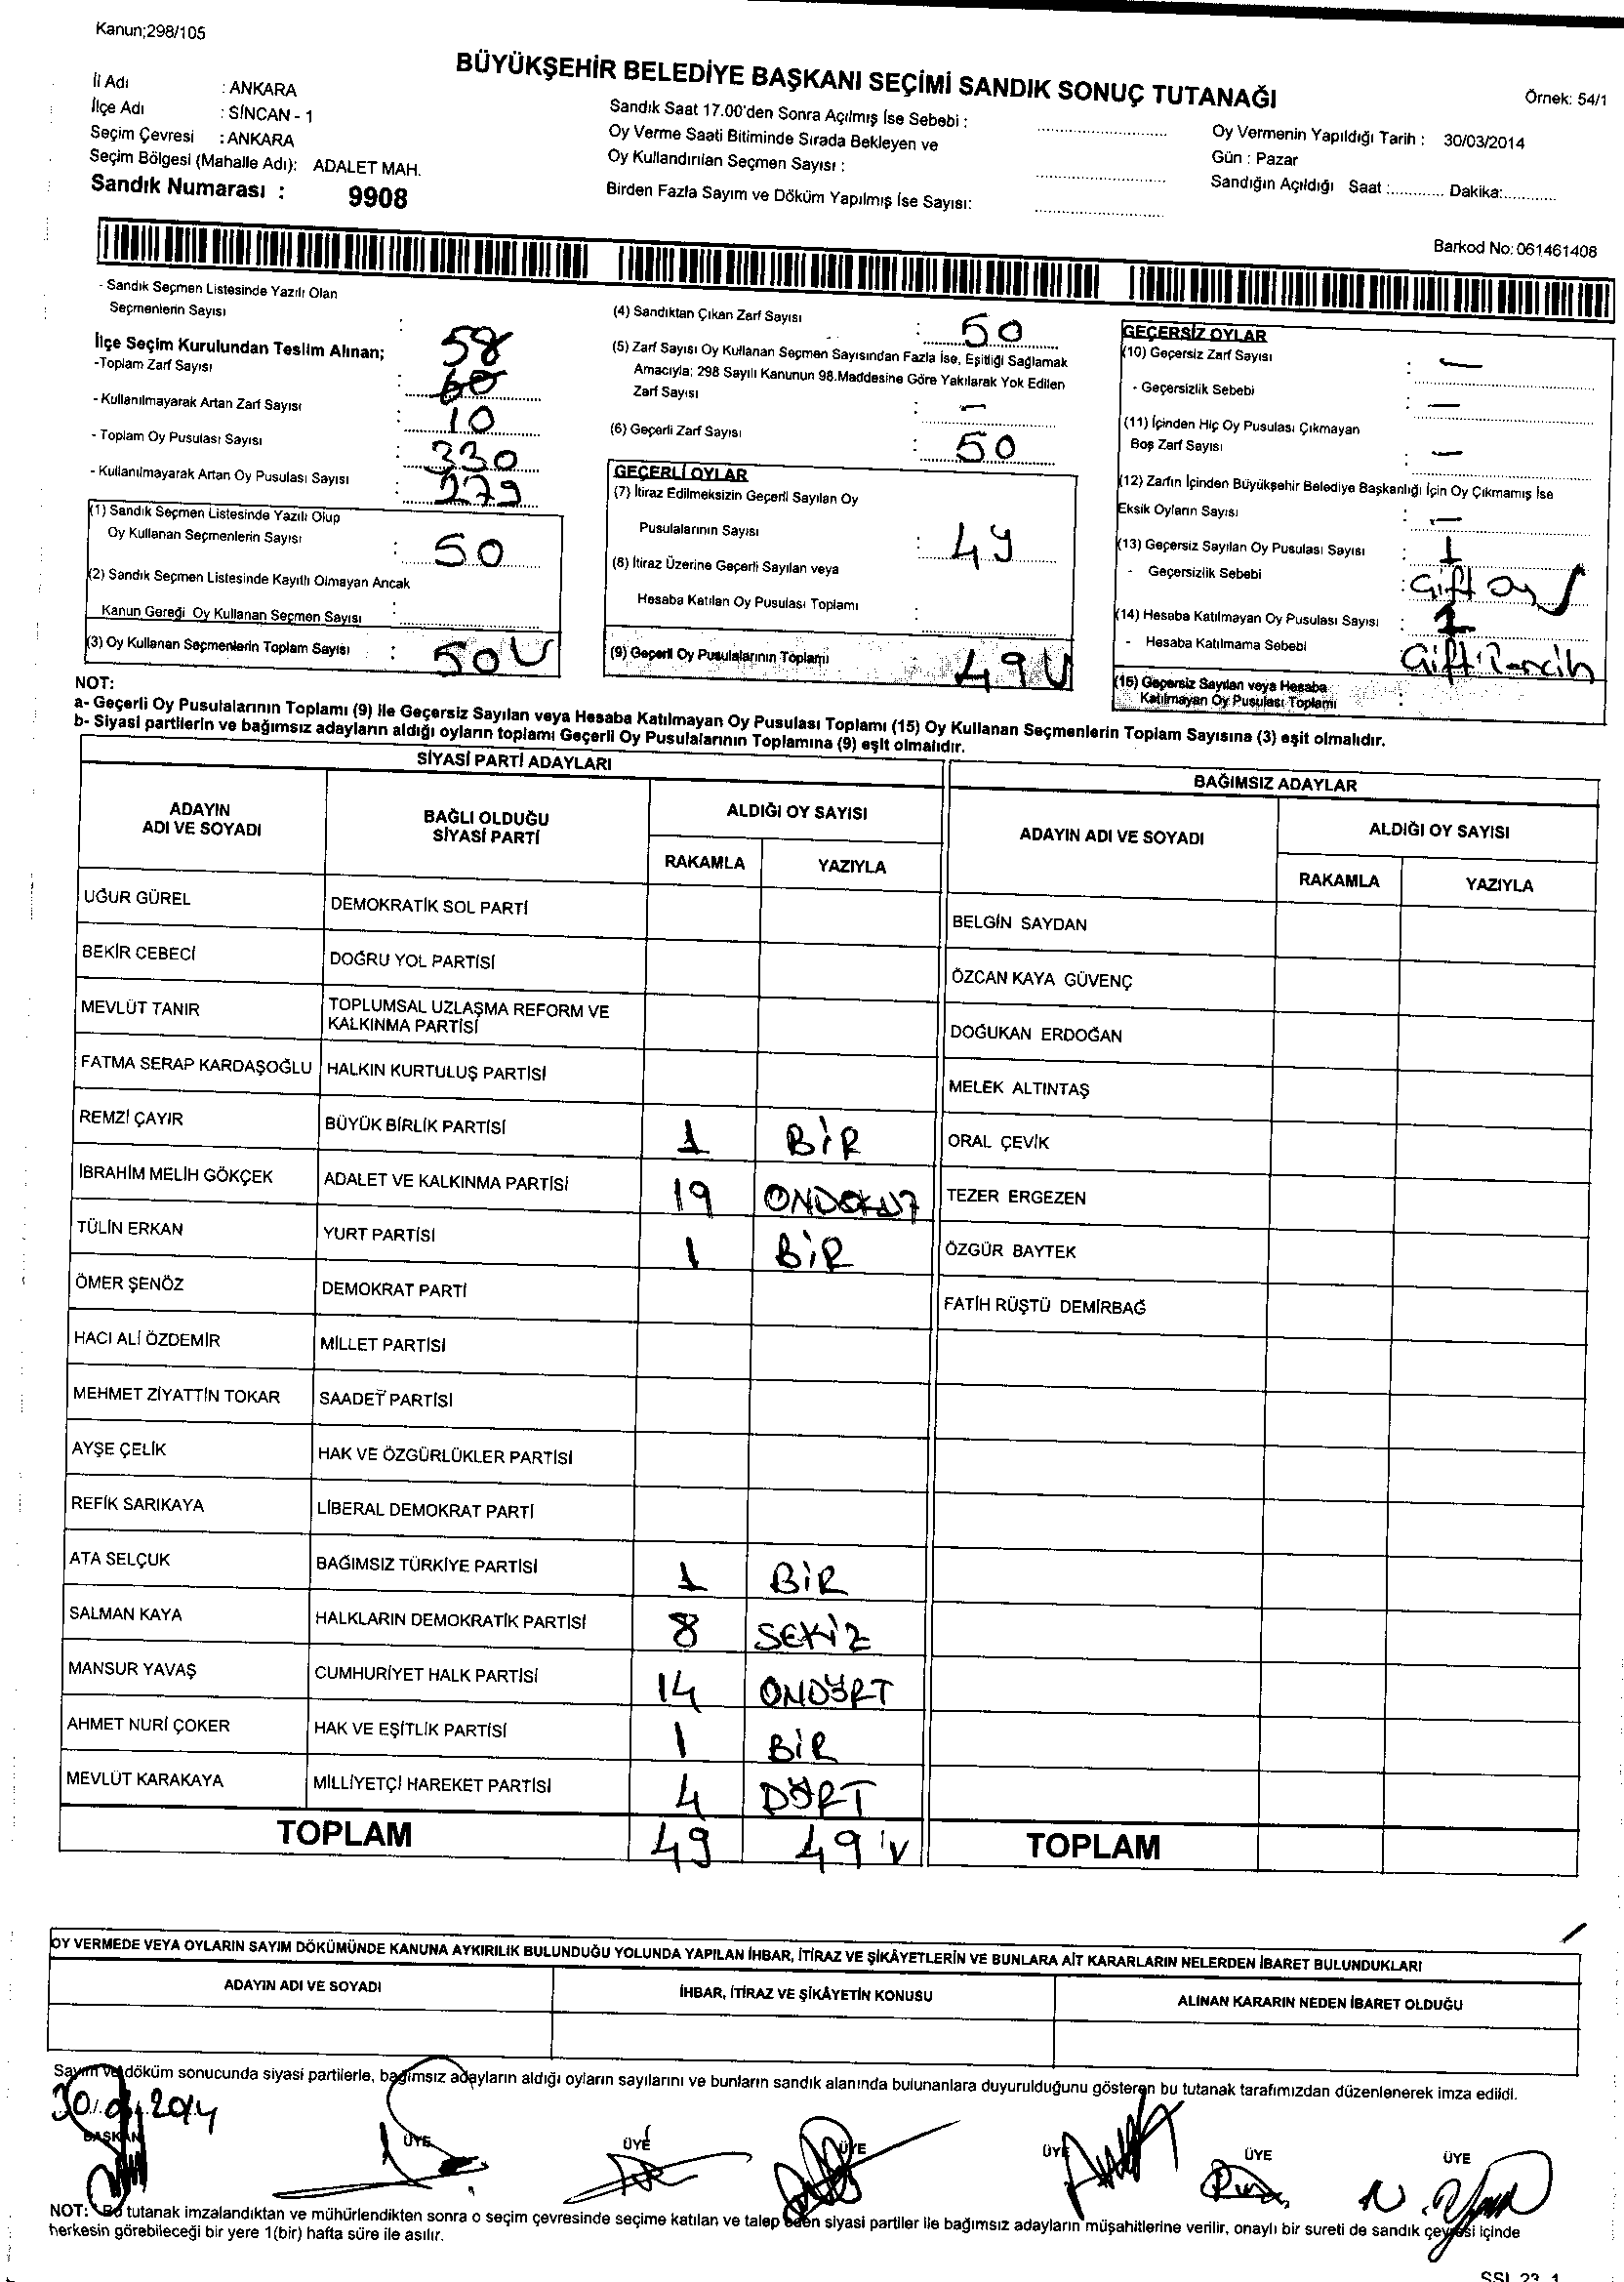 Kanun;298/105
BÜYÜKŞEHİR BELEDİYE BAŞKANI SEÇİMİ SANDIK SONUÇ TUTANAĞI
Örnek: 54/1
İl Adı : ANKARA
İlçe Adı : SİNCAN - 1
Seçim Çevresi : ANKARA
Seçim Bölgesi (Mahalle Adı): ADALET MAH.
Sandık Numarası : 9908
Sandık Saat 17.00'den Sonra Açılmış İse Sebebi :
Oy Verme Saati Bitiminde Sırada Bekleyen ve
Oy Kullandırılan Seçmen Sayısı :
Birden Fazla Sayım ve Döküm Yapılmış İse Sayısı:
Oy Vermenin Yapıldığı Tarih : 30/03/2014
Gün : Pazar
Sandığın Açıldığı Saat :............ Dakika:............
Barkod No: 061461408
- Sandık Seçmen Listesinde Yazılı Olan
Seçmenlerin Sayısı : 58
İlçe Seçim Kurulundan Teslim Alınan;
-Toplam Zarf Sayısı : 60
- Kullanılmayarak Artan Zarf Sayısı : 10
- Toplam Oy Pusulası Sayısı : 330
- Kullanılmayarak Artan Oy Pusulası Sayısı : 279
(1) Sandık Seçmen Listesinde Yazılı Olup
Oy Kullanan Seçmenlerin Sayısı : 50
(2) Sandık Seçmen Listesinde Kayıtlı Olmayan Ancak
Kanun Gereği Oy Kullanan Seçmen Sayısı :
(3) Oy Kullanan Seçmenlerin Toplam Sayısı : 50
(4) Sandıktan Çıkan Zarf Sayısı : 50
(5) Zarf Sayısı Oy Kullanan Seçmen Sayısından Fazla İse, Eşitliği Sağlamak
Amacıyla; 298 Sayılı Kanunun 98.Maddesine Göre Yakılarak Yok Edilen
Zarf Sayısı : -
(6) Geçerli Zarf Sayısı : 50
GEÇERLİ OYLAR
(7) İtiraz Edilmeksizin Geçerli Sayılan Oy
Pusulalarının Sayısı : 49
(8) İtiraz Üzerine Geçerli Sayılan veya
Hesaba Katılan Oy Pusulası Toplamı :
(9) Geçerli Oy Pusulalarının Toplamı : 49
GEÇERSİZ OYLAR
(10) Geçersiz Zarf Sayısı : -
- Geçersizlik Sebebi : -
(11) İçinden Hiç Oy Pusulası Çıkmayan
Boş Zarf Sayısı : -
(12) Zarfın İçinden Büyükşehir Belediye Başkanlığı İçin Oy Çıkmamış İse
Eksik Oyların Sayısı : -
(13) Geçersiz Sayılan Oy Pusulası Sayısı : 1
- Geçersizlik Sebebi : Çift oy
(14) Hesaba Katılmayan Oy Pusulası Sayısı : 1
- Hesaba Katılmama Sebebi Çift Tercih
(15) Geçersiz Sayılan veya Hesaba
Katılmayan Oy Pusulası Toplamı :
NOT:
a- Geçerli Oy Pusulalarının Toplamı (9) İle Geçersiz Sayılan veya Hesaba Katılmayan Oy Pusulası Toplamı (15) Oy Kullanan Seçmenlerin Toplam Sayısına (3) eşit olmalıdır.
b- Siyasi partilerin ve bağımsız adayların aldığı oyların toplamı Geçerli Oy Pusulalarının Toplamına (9) eşit olmalıdır.
SİYASİ PARTİ ADAYLARI
ADAYIN ADI VE SOYADI BAĞLI OLDUĞU SİYASİ PARTİ ALDIĞI OY SAYISI
RAKAMLA YAZIYLA
UĞUR GÜREL DEMOKRATİK SOL PARTİ
BEKİR CEBECİ DOĞRU YOL PARTİSİ
MEVLÜT TANIR TOPLUMSAL UZLAŞMA REFORM VE
KALKINMA PARTİSİ
FATMA SERAP KARDAŞOĞLU HALKIN KURTULUŞ PARTİSİ
REMZİ ÇAYIR BÜYÜK BİRLİK PARTİSİ 1 BİR
İBRAHİM MELİH GÖKÇEK ADALET VE KALKINMA PARTİSİ 19 ONDOKUZ
TÜLİN ERKAN YURT PARTİSİ 1 BİR
ÖMER ŞENÖZ DEMOKRAT PARTİ
HACI ALİ ÖZDEMİR MİLLET PARTİSİ
MEHMET ZİYATTİN TOKAR SAADET PARTİSİ
AYŞE ÇELİK HAK VE ÖZGÜRLÜKLER PARTİSİ
REFİK SARIKAYA LİBERAL DEMOKRAT PARTİ
ATA SELÇUK BAĞIMSIZ TÜRKİYE PARTİSİ 1 BİR
SALMAN KAYA HALKLARIN DEMOKRATİK PARTİSİ 8 SEKİZ
MANSUR YAVAŞ CUMHURİYET HALK PARTİSİ 14 ONDÖRT
AHMET NURİ ÇOKER HAK VE EŞİTLİK PARTİSİ 1 BİR
MEVLÜT KARAKAYA MİLLİYETÇİ HAREKET PARTİSİ 4 DÖRT
TOPLAM 49 49
BAĞIMSIZ ADAYLAR
ADAYIN ADI VE SOYADI ALDIĞI OY SAYISI
RAKAMLA YAZIYLA
BELGİN SAYDAN
ÖZCAN KAYA GÜVENÇ
DOĞUKAN ERDOĞAN
MELEK ALTINTAŞ
ORAL ÇEVİK
TEZER ERGEZEN
ÖZGÜR BAYTEK
FATİH RÜŞTÜ DEMİRBAĞ
TOPLAM
OY VERMEDE VEYA OYLARIN SAYIM DÖKÜMÜNDE KANUNA AYKIRILIK BULUNDUĞU YOLUNDA YAPILAN İHBAR, İTİRAZ VE ŞİKÂYETLERİN VE BUNLARA AİT KARARLARIN NELERDEN İBARET BULUNDUKLARI
ADAYIN ADI VE SOYADI İHBAR, İTİRAZ VE ŞİKÂYETİN KONUSU ALINAN KARARIN NEDEN İBARET OLDUĞU
Sayım ve döküm sonucunda siyasi partilerle, bağımsız adayların aldığı oyların sayılarını ve bunların sandık alanında bulunanlara duyurulduğunu gösteren bu tutanak tarafımızdan düzenlenerek imza edildi.
BAŞKAN ÜYE ÜYE ÜYE ÜYE ÜYE ÜYE
NOT: Bu tutanak imzalandıktan ve mühürlendikten sonra o seçim çevresinde seçime katılan ve talep eden siyasi partiler ile bağımsız adayların müşahitlerine verilir, onaylı bir sureti de sandık çevresi içinde
herkesin görebileceği bir yere 1(bir) hafta süre ile asılır.